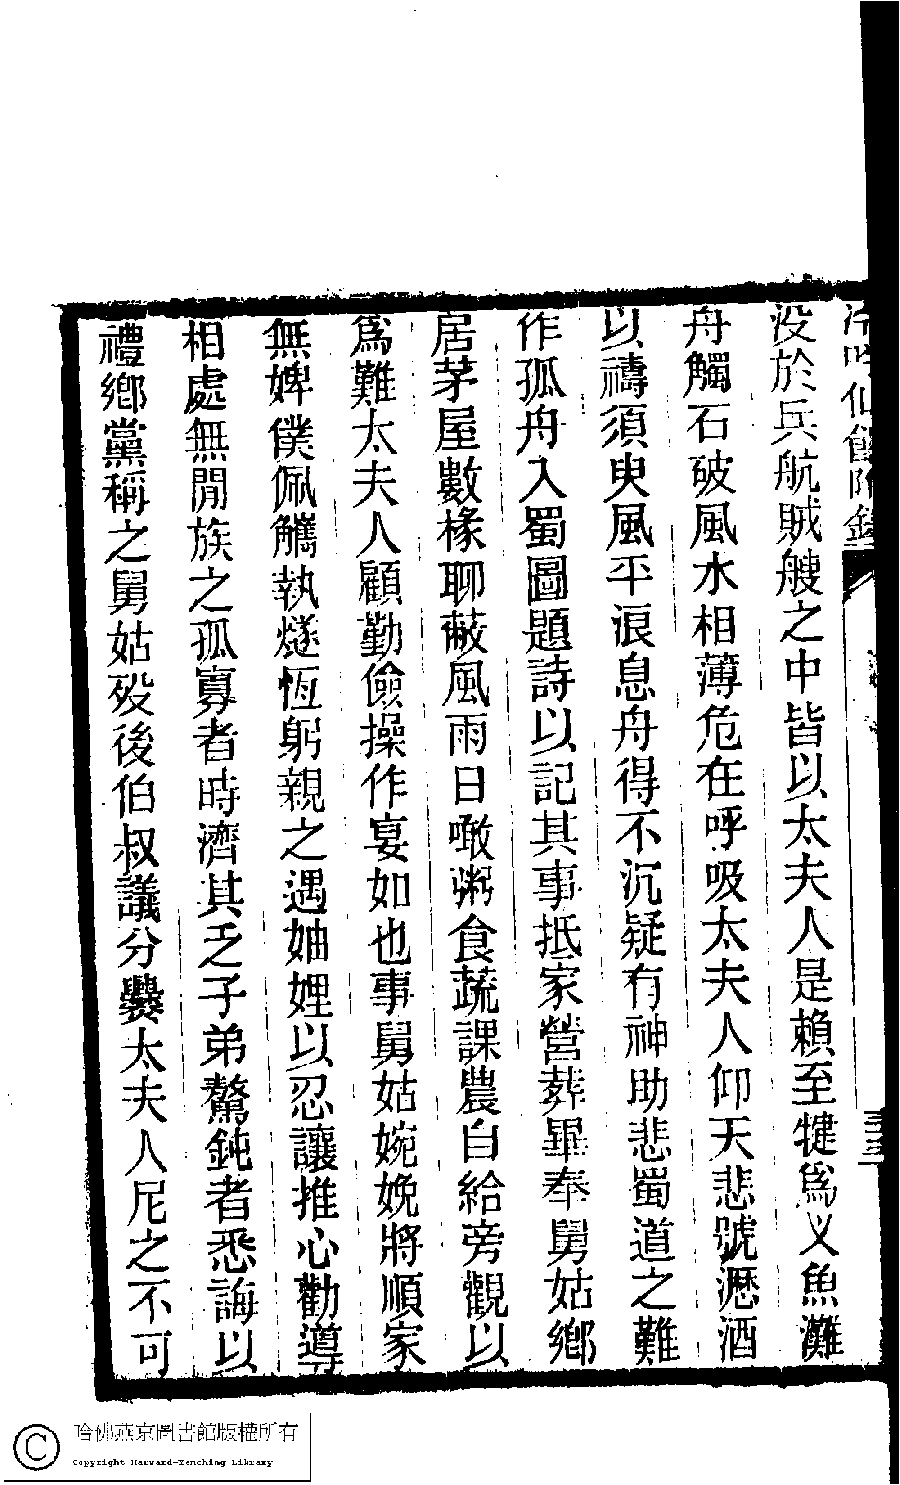 冷吟仙館附錄
三三
沒於兵航賊艘之中皆以太夫人是賴至犍爲乂魚灘
舟觸石破風水相薄危在呼吸太夫人仰天悲號瀝酒
以禱須臾風平浪息舟得不沉疑有神助悲蜀道之難
作孤舟入蜀圖題詩以記其事抵家營葬畢奉舅姑鄉
居茅屋數椽聊蔽風雨日噉粥食蔬課農自給旁觀以
爲難太夫人顧勤儉操作宴如也事舅姑婉娩將順家
無婢僕佩觿執燧恆躬親之遇妯娌以忍讓推心勸導
相處無閒族之孤寡者時濟其乏子弟驁鈍者悉誨以
禮鄉黨稱之舅姑歿後伯叔議分爨太夫人尼之不可
哈佛燕京圖書館版權所有
Copyright Harvard-Yenching Library